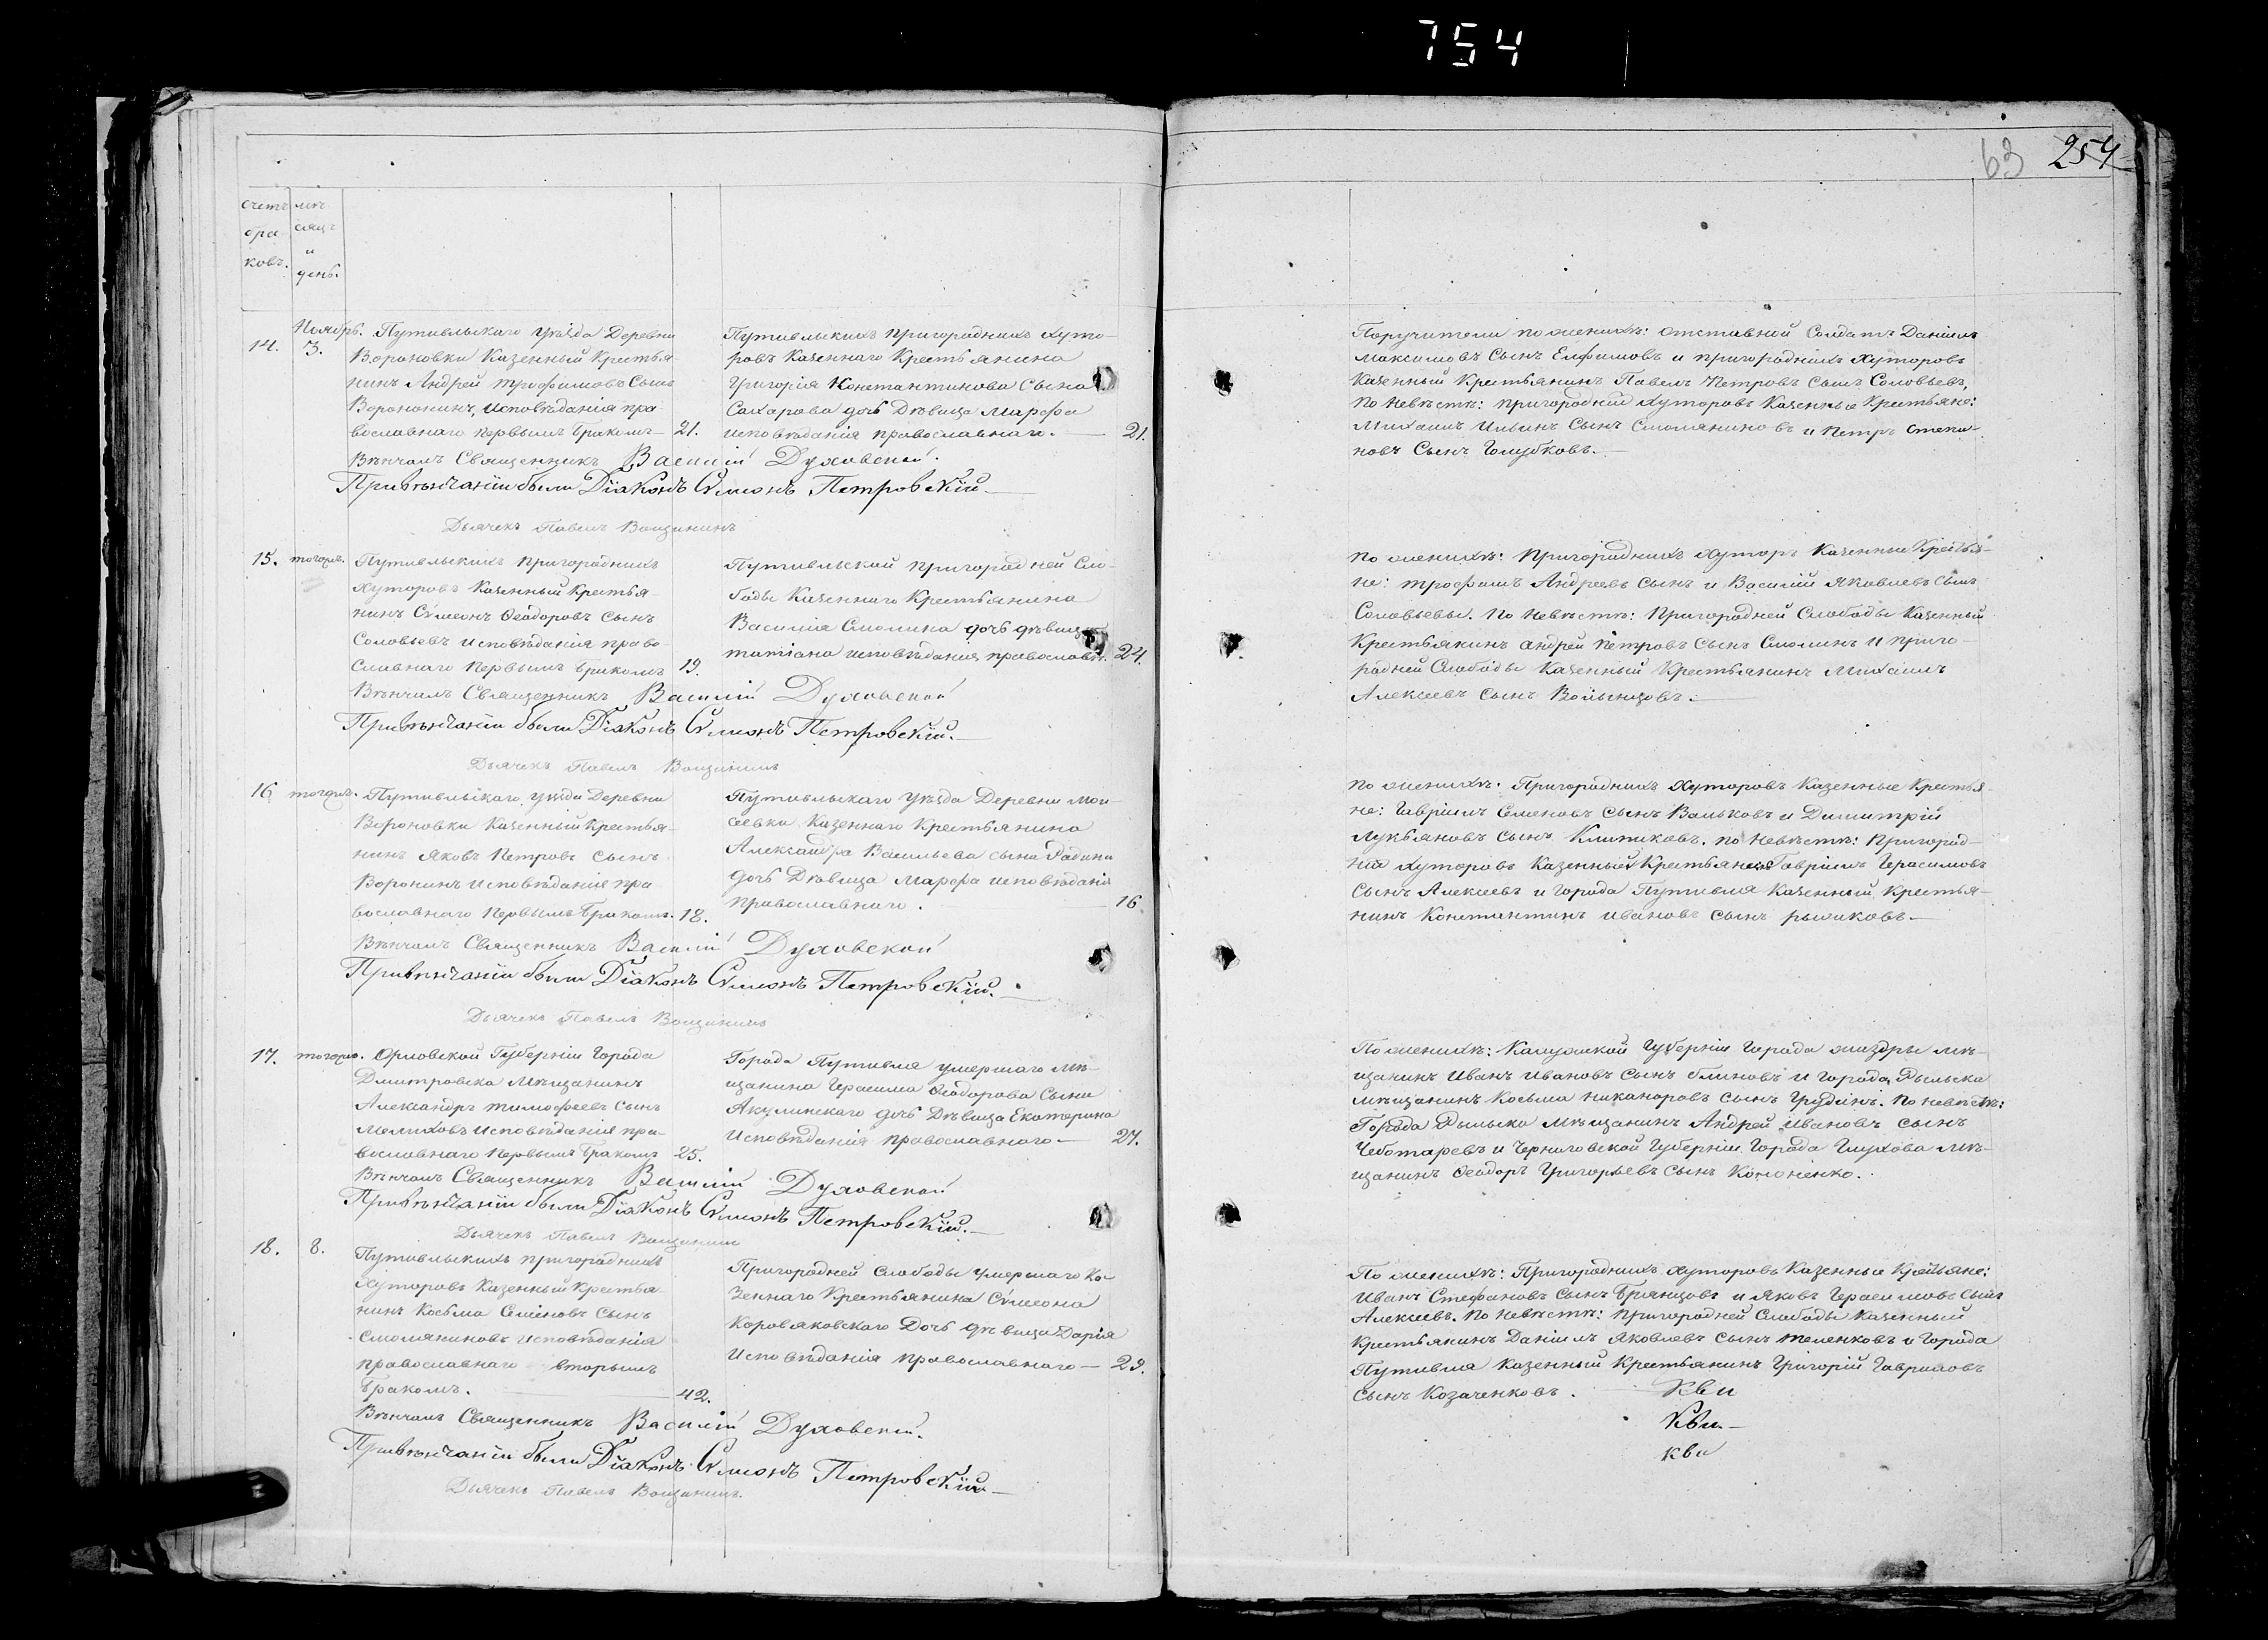 754
63 254
счетъ мѣ-
бра- сяцъ
ковъ. и
день.
Ноябрь. Путивльскаго уѣзда Деревни
14. 3. Вороновки Казенный Крестья-
нинъ Андрей трофимовъ Сынъ
Воронинъ, Исповѣданія пра-
вославнаго первымъ бракомъ — 21.
Путивльскихъ пригородныхъ хуто-
ровъ казеннаго Крестьянина
Григорія Константинова Сына
Сахарова дочь Дѣвица Марфа
исповѣданія православнаго. — 21.
Вѣнчалъ Священникъ Василій Духовской.
При вѣнчаніи были Діаконъ Сѵмеонъ Петровскій.—
Дьячекъ Павелъ Вощининъ
Поручители по женихѣ: отставной Солдатъ Даніилъ
Максимовъ Сынъ Ефимовъ и пригородныхъ Хуторовъ
Казенный Крестьянинъ Павелъ Петровъ Сынъ Соловьевъ,
По Невѣстѣ: пригородныхъ хуторовъ Казенные Крестьяне:
Михаилъ Ильинъ Сынъ Смоляниновъ и Петръ
новъ Сынъ Голубковъ. —
15. тогожъ. Путивльскихъ пригородныхъ
Хуторовъ Казенный Крестья-
нинъ Сѵмеонъ Ѳеодоровъ Сынъ
Соловьевъ исповѣданія право-
славнаго первымъ бракомъ 19.
Путивльской пригородней Сло-
боды Казеннаго Крестьянина
Василія Смолина дочь дѣвица
татіана исповѣданія православн. 24.
Вѣнчалъ Священникъ Василій Духовской
При вѣнчаніи были Діаконъ Сѵмеонъ Петровскій.—
Дьячекъ Павелъ Вощининъ
по женихѣ: Пригородныхъ хуторъ Казенные Крестья-
не: трофимъ Андреевъ Сынъ и Василій Яковлевъ Сынъ
Соловьевы. По Невѣстѣ: Пригородней Слободы Казенный
Крестьянинъ андрей Петровъ Сынъ Смолинъ и приго-
родней Слободы Казенный Крестьянинъ Михаилъ
Алексеевъ Сынъ Волынцовъ.—
16 тогожъ. Путивльскаго уѣзда Деревни
Вороновки Казенный Крестья-
нинъ Яковъ Петровъ Сынъ
Воронинъ исповѣданія пра-
вославнаго первымъ бракомъ. 18.
Путивльскаго уѣзда Деревни Мои-
сеевки Казеннаго Крестьянина
Александра Васильева сына Радина
дочь Дѣвица Марфа исповѣданія
православнаго. — 16
Вѣнчалъ Священникъ Василій Духовской
При вѣнчаніи были Діаконъ Сѵмеонъ Петровскій.—
Дьячекъ Павелъ Вощининъ
по женихѣ: Пригородныхъ Хуторовъ Казенные Крестья-
не: Гавріилъ Семеновъ Сынъ Вольковъ и Димитрій
Лукьяновъ сынъ Клитиковъ. по Невѣстѣ: Пригород-
ныхъ хуторовъ Казенный Крестьянинъ Гавріилъ Герасимовъ
Сынъ Алексеевъ и города Путивля Казенный Крестья-
нинъ Константинъ Ивановъ Сынъ рыжиковъ.—
17. тогожъ. Орловской Губерніи Города
Дмитровска Мѣщанинъ
Александръ тимофеевъ Сынъ
Мелиховъ Исповѣданія пра-
вославнаго первымъ бракомъ 25.
Города Путивля умершаго Мѣ-
щанина Герасима Ѳеодорова Сына
Акулинскаго дочь Дѣвица Екатерина
Исповѣданія православнаго.— 27.
Вѣнчалъ Священникъ Василій Духовской
При вѣнчаніи были Діаконъ Сѵмеонъ Петровскій.—
Дьячекъ Павелъ Вощининъ
По женихѣ: Калужской Губерніи Города жиздры мѣ-
щанинъ Иванъ Ивановъ Сынъ блиновъ и Города Рыльска
мѣщанинъ Косьма никаноровъ сынъ Грудинъ. По невѣстѣ:
Города Рыльска Мѣщанинъ Андрей Ивановъ сынъ
Чеботаревъ и Черниговской Губерніи Города Глухова мѣ-
щанинъ Ѳеодоръ Григорьевъ Сынъ Кононенко.
18. 8. Путивльскихъ пригородныхъ
Хуторовъ Казенный Крестья-
нинъ Косьма Семеновъ Сынъ
Смоляниновъ исповѣданія
православнаго вторымъ
бракомъ. — 42.
Пригородней Слободы умершаго Ка-
зеннаго Крестьянина Сѵмеона
Коровяковскаго Дочь дѣвица Дарія
Исповѣданія православнаго — 29.
Вѣнчалъ Священникъ Василій Духовской.
При вѣнчаніи были Діаконъ Сѵмеонъ Петровскій—
Дьячекъ Павелъ Вощининъ.
По женихѣ: Пригородныхъ хуторовъ Казенные Крестьяне:
Иванъ Стефановъ Сынъ Брянцовъ и Яковъ Герасимовъ Сынъ
Алексеевъ. По Невѣстѣ: пригородней Слободы Казенный
Крестьянинъ Даніилъ Яковлевъ Сынъ теленковъ и Города
Путивля Казенный Крестьянинъ Григорій Гавриловъ
Сынъ Козаченковъ.